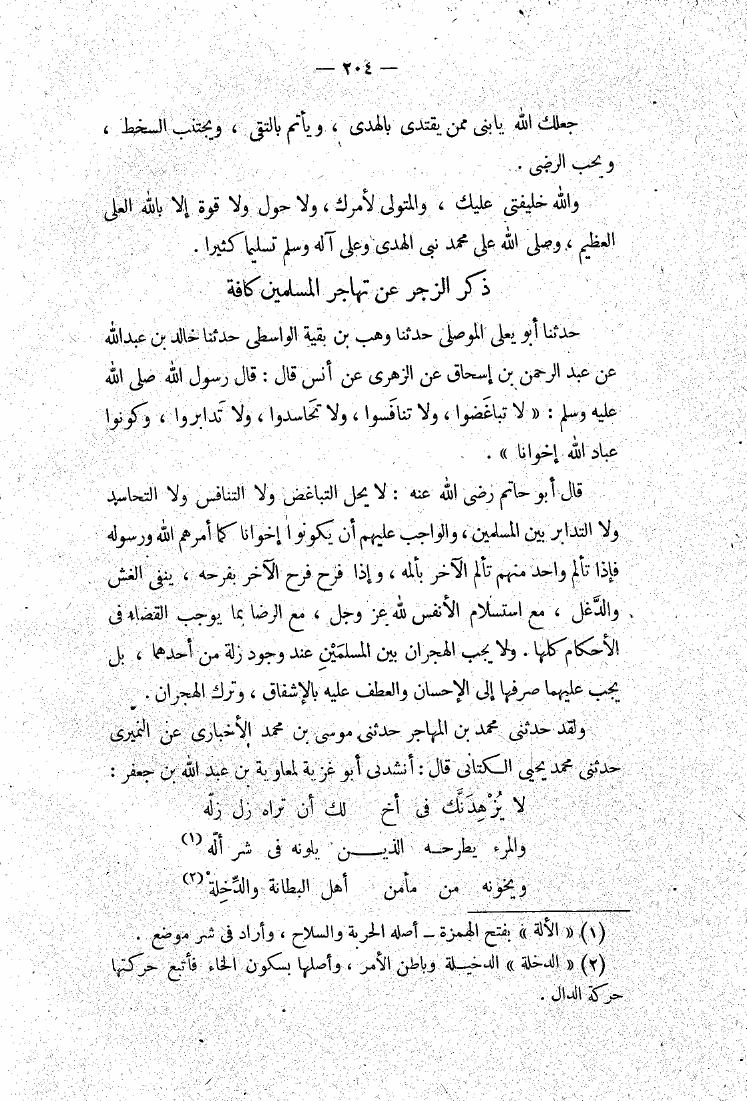 — ٢٠٤ —
جعلك الله يابنى ممن يقتدى بالهدى ، ويأتم بالتقى ، ويجتنب السخط ،
ويحب الرضى .
والله خليفتى عليك ، والمتولى لأمرك ، ولا حول ولا قوة إلا بالله العلى
العظيم ، وصلى الله على محمد نبى الهدى وعلى آله وسلم تسليما كثيرا .
ذكر الزجر عن تهاجر المسلمين كافة
حدثنا أبو يعلى الموصلى حدثنا وهب بن بقية الواسطى حدثنا خالد بن عبدالله
عن عبد الرحمن بن إسحاق عن الزهرى عن أنس قال : قال رسول الله صلى الله
عليه وسلم : « لا تباغَضوا ، ولا تنافَسوا ، ولا تَحَاسدوا ، ولا تَدابروا ، وكونوا
عباد الله إخوانا » .
قال أبو حاتم رضى الله عنه : لا يحل التباغض ولا التنافس ولا التحاسد
ولا التدابر بين المسلمين ، والواجب عليهم أن يكونوا إخوانا كما أمرهم الله ورسوله
فإذا تألم واحد منهم تألم الآخر بألمه ، وإذا فرح فرح الآخر بفرحه ، ينفى الغش
والدَّغل ، مع استسلام الأنفس لله عز وجل ، مع الرضا بما يوجب القضاء فى
الأحكام كلها . ولا يجب الهجران بين المسلمَيْنِ عند وجود زلة من أحدهما ، بل
يجب عليهما صرفها إلى الإحسان والعطف عليه بالإشفاق ، وترك الهجران .
ولقد حدثنى محمد بن المهاجر حدثنى موسى بن محمد الأخبارى عن النميرى
حدثنى محمد يحيى الكتانى قال : أنشدنى أبو غزية لمعاوية بن عبد الله بن جعفر :
لا يُزْهِدَنَّك فى أخ لك أن تراه زل زلّه
والمرء يطرحه الذيــن يلونه فى شر ألّه (١)
ويخونه من مأمن أهل البطانة والدِّخِلة (٢)
(١) « الألة » بفتح الهمزة – أصله الحربة والسلاح ، وأراد فى شر موضع .
(٢) « الدخلة » الدخيلة وباطن الأمر ، وأصلها بسكون الخاء فأتبع حركتها
حركة الدال .